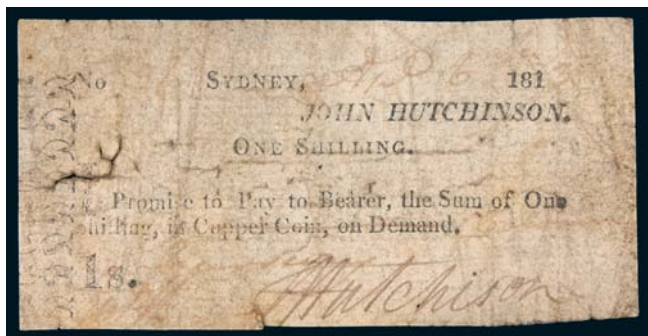 No SYDNEY, 181
JOHN HUTCHINSON.
ONE SHILLING.
Promise to Pay to Bearer, the Sum of One
hilling, in Copper Coin, on Demand.
1s.
Hutchison